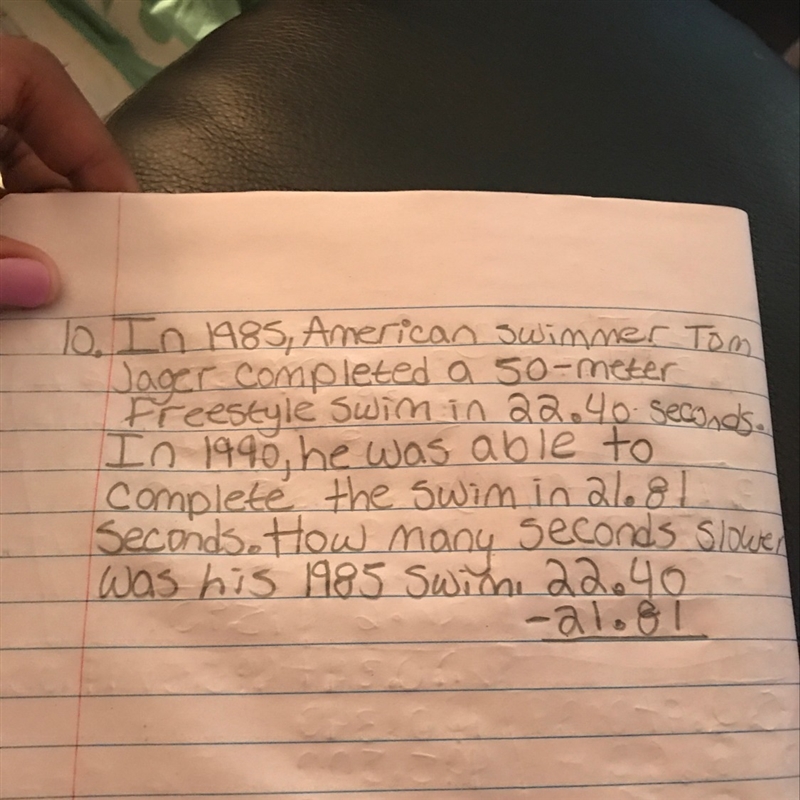 10. In 1985, American swimmer Tom
Jager completed a 50-meter
Freestyle swim in 22.40 seconds.
In 1990, he was able to
complete the swim in 21.81
seconds. How many seconds slower
was his 1985 swim. 22.40
-21.81